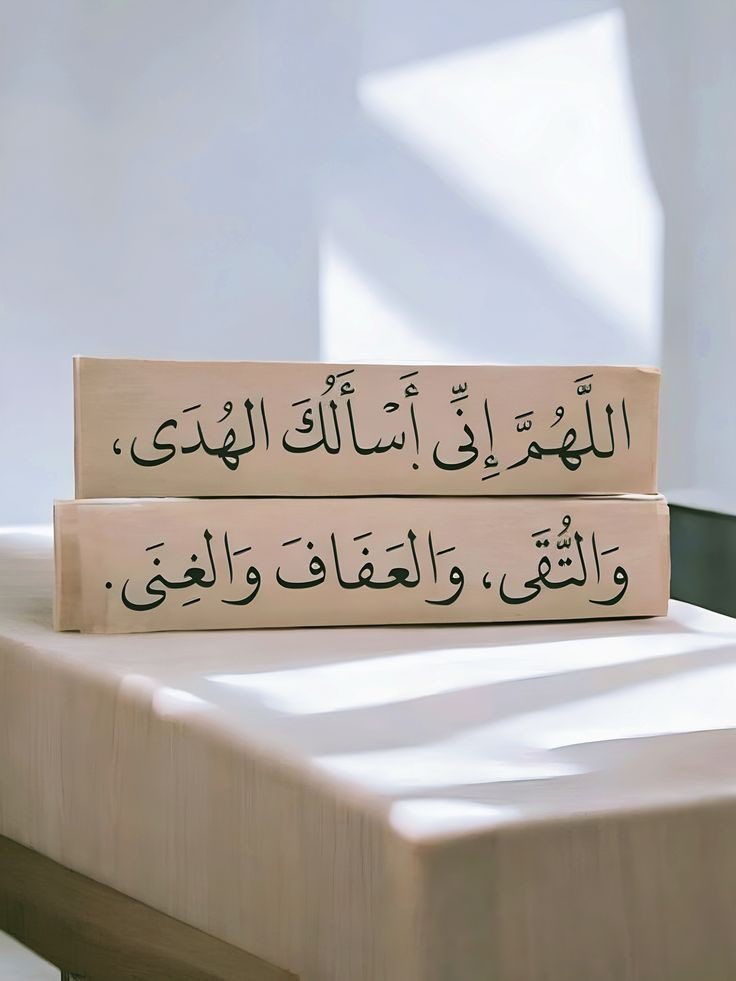 اللَّهُمَّ إِنِّي أَسْأَلُكَ الهُدَى،
وَالتُّقَى، وَالعَفَافَ وَالغِنَى.